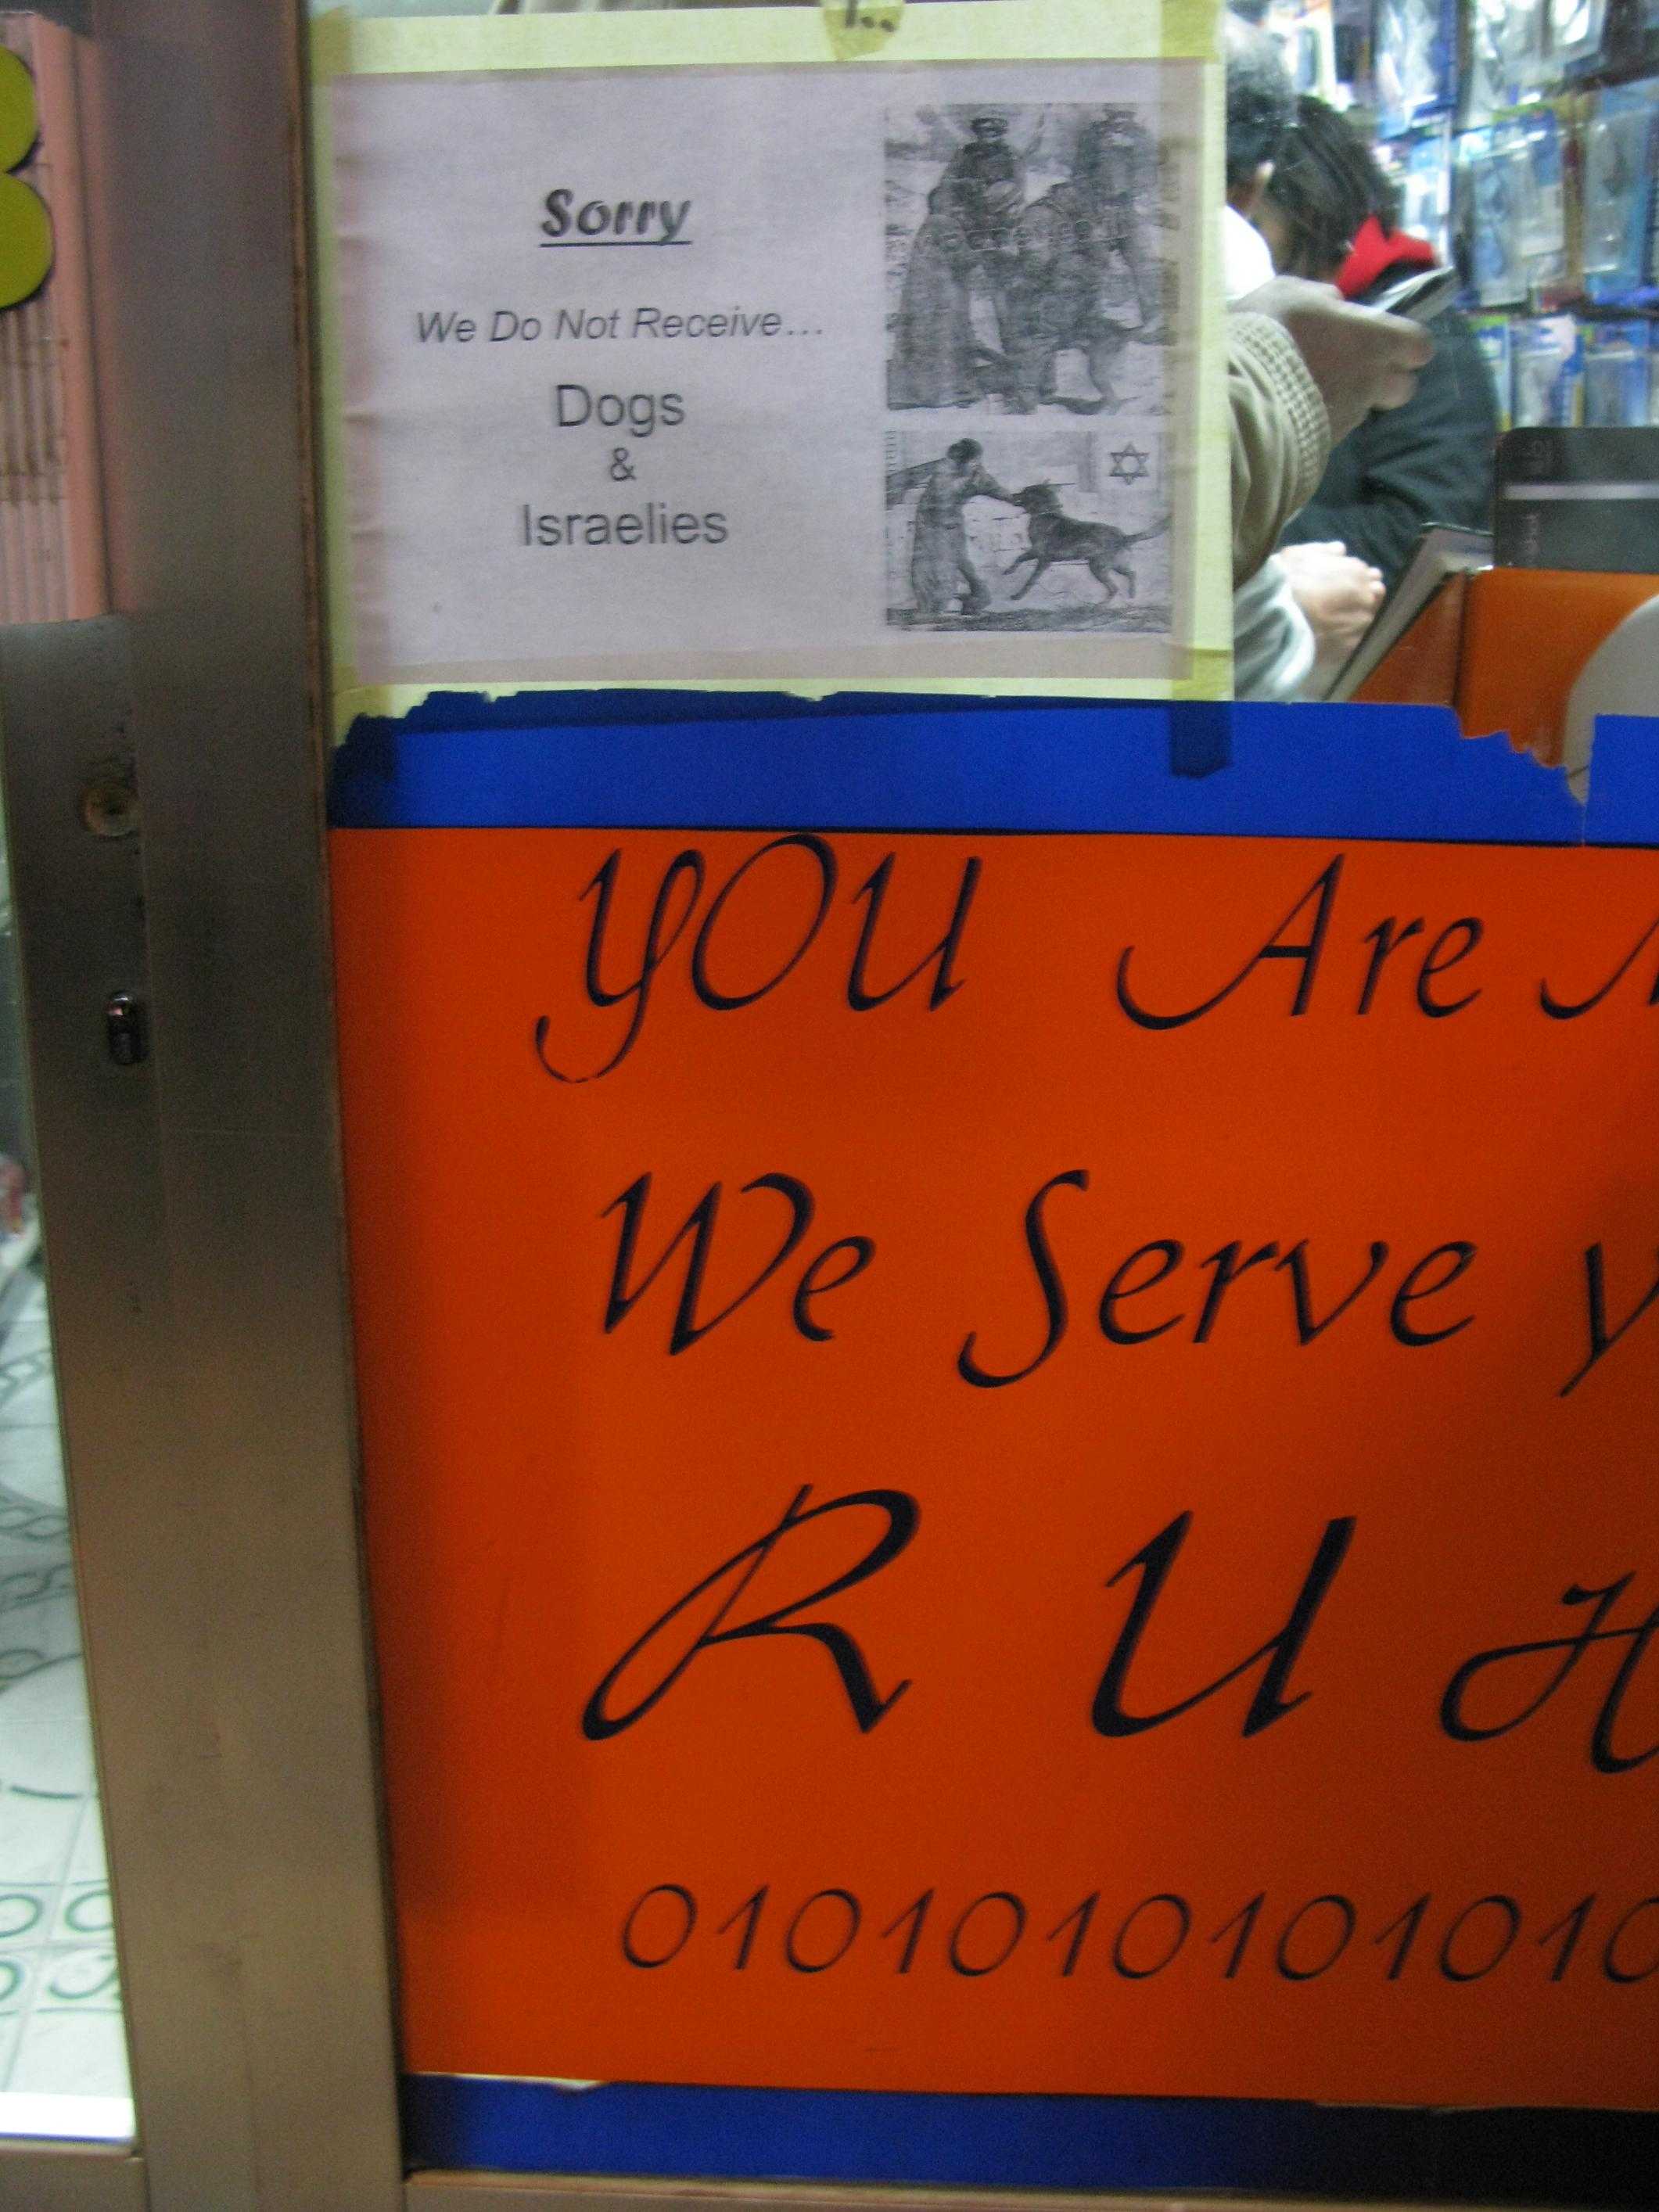 Sorry
We Do Not Receive...
Dogs
&
Israelies
YOU Are
We Serve
R U
010101010101010